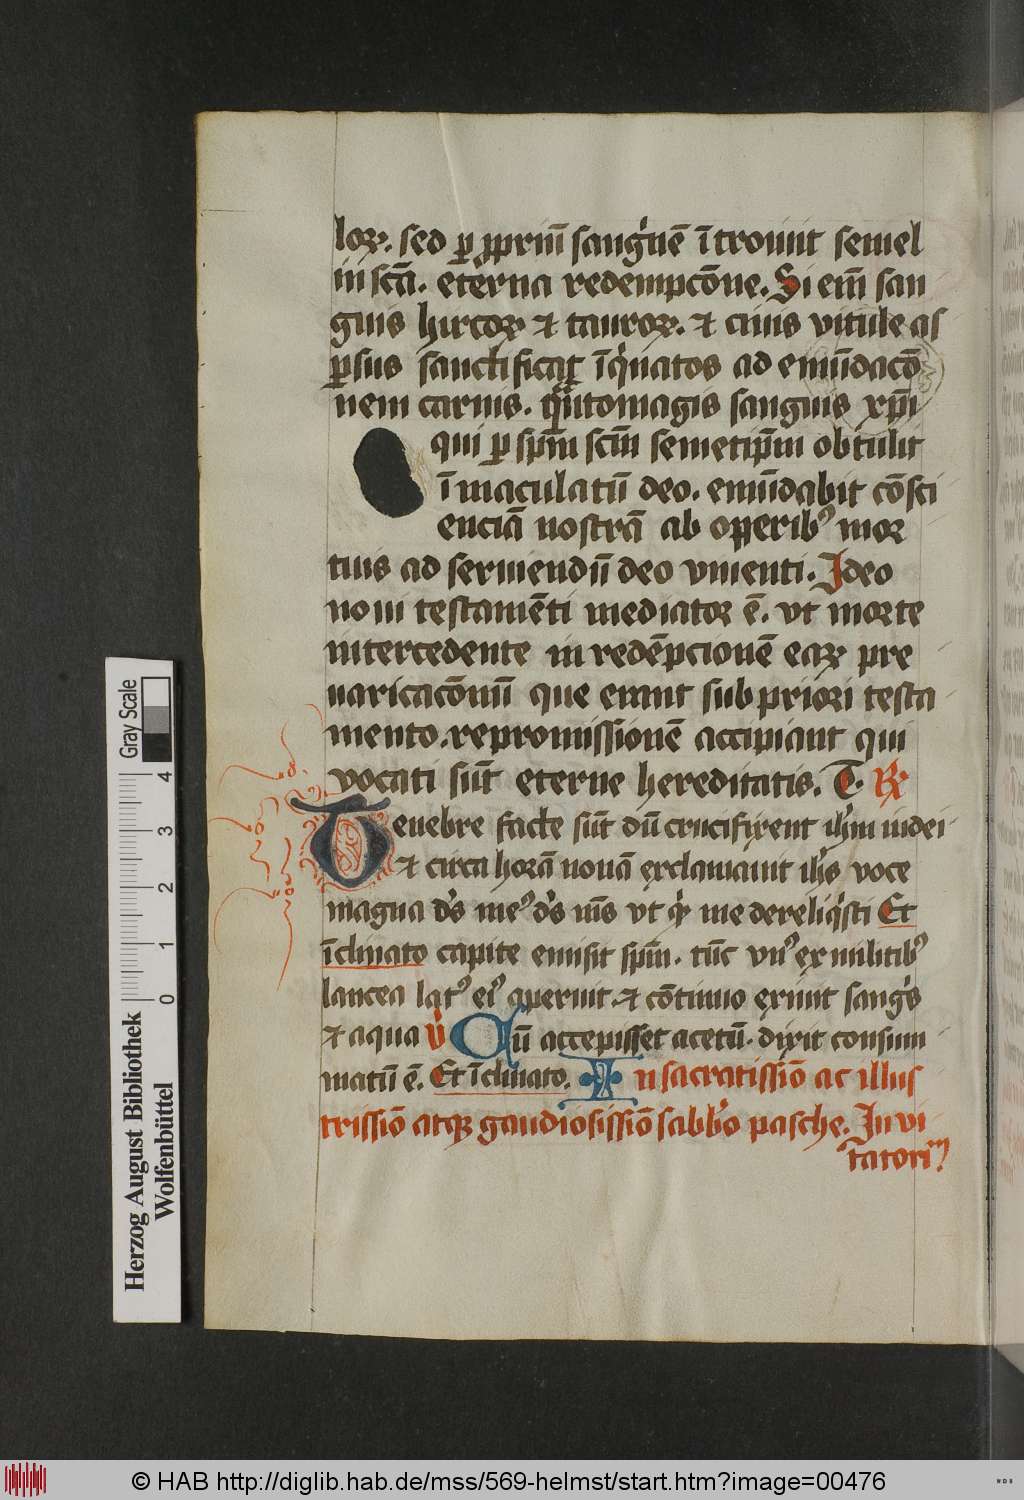 loꝝ. sed ꝑ ꝓpriū sangͥnē ītroiuit semel
in scā. eterna redempcōne. Si em̄ san
guis hircoꝝ ⁊ tauroꝝ. ⁊ cinis vitule as
ꝑsus sanctificat īqͥnatos ad emūdacō
nem carnis. qͣntomagis sanguis xp̄i
qui ꝑ sp̄m scm̄ semetip̄m obtulit
īmaculatū deo. emūdabit cōsci
enciā nostrā ab opperibꝰ mor
tuis ad seruiendū deo viuenti. Ideo
noui testamēti mediator ē. vt morte
intercedente in redēpcionē eaꝝ pre
uaricacōnū que erant sub priori testa
mento. repromissionē accipiant qui
vocati sūt eterne hereditatis. T. R
Tenebre facte sūt dū crucifixent ihm̄ iudei
⁊ circa horā nonā exclamauit ihs̄ voce
magna dˢ meꝰ dˢ mˢ vt qͥ me dereliqͥsti Et
īclinato capite emisit spm̄. tūc vnꝰ ex militibꝰ
lancea latꝰ eiꝰ aperuit. ⁊ cōtinuo exiuit sangͥs
⁊ aqua v̇ Cū accepisset acetū. dixit consum
matū ē. Et īclinato. In sacratissiō ac illus
trissiō atqꝫ gaudiosissiō sabbo pasche. Inui
tatoriᵐ
Gray Scale
4
3
2
1
0
Herzog August Bibliothek
Wolfenbüttel
© HAB http://diglib.hab.de/mss/569-helmst/start.htm?image=00476